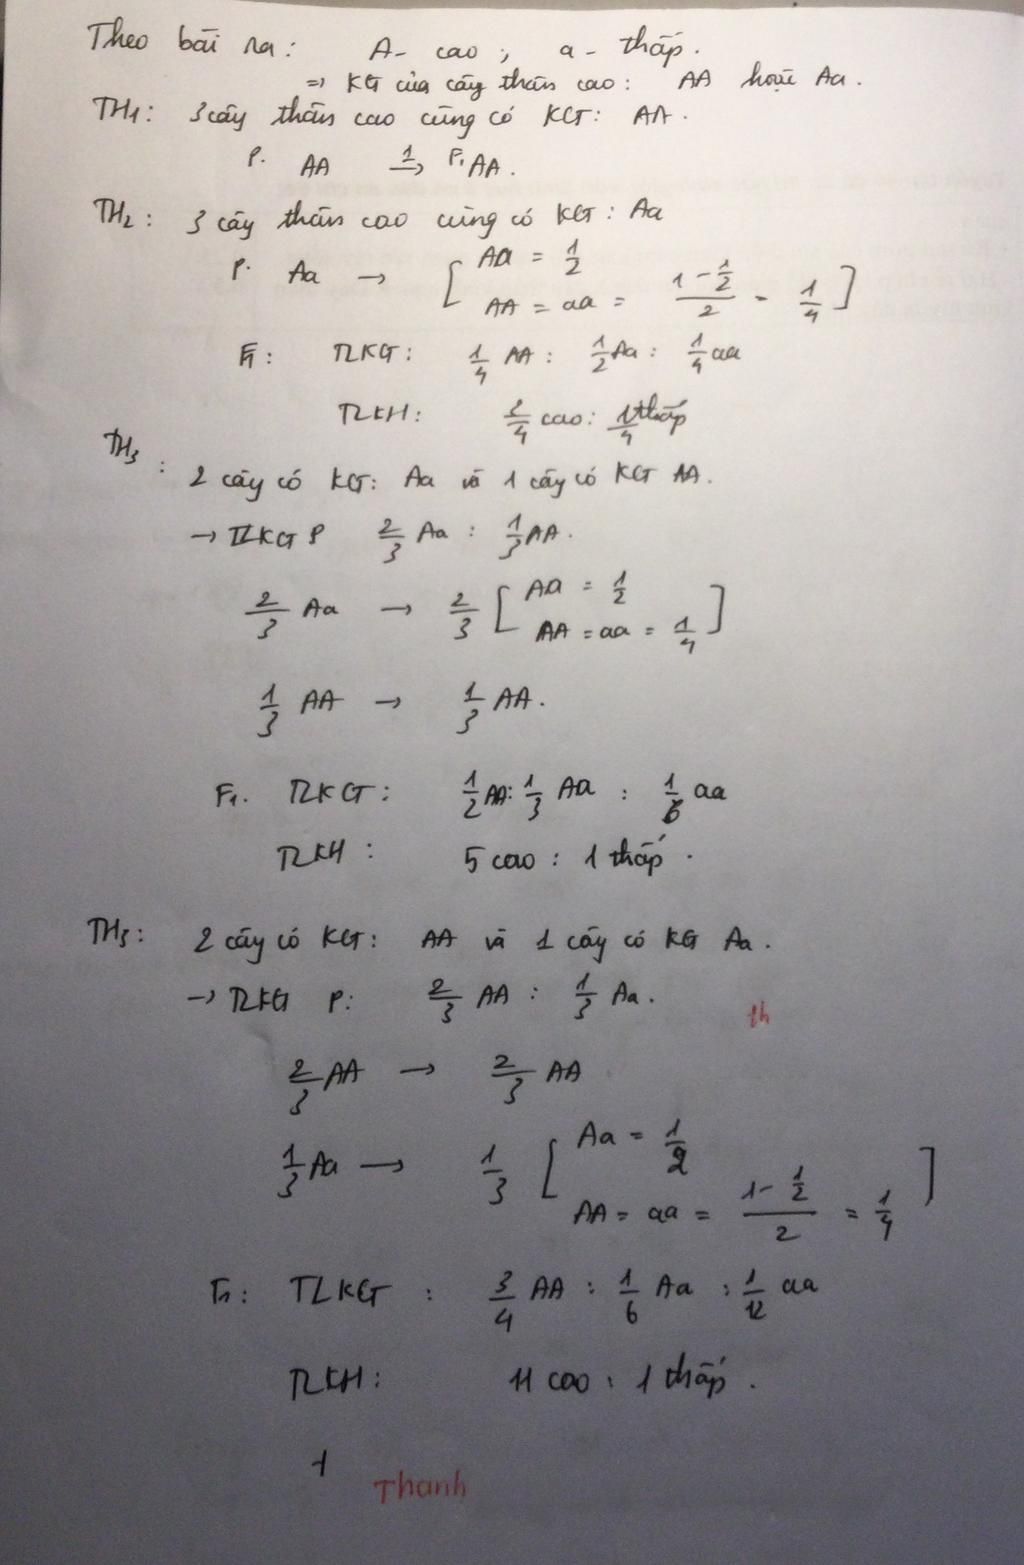 Theo bài ra: A- cao ; a- thấp.
=> KG của cây thân cao: AA hoặc Aa.
TH1: 3 cây thân cao cùng có KG: AA.
P. AA →(1) F1 AA.
TH2: 3 cây thân cao cùng có KG: Aa
P. Aa → [ Aa = 1/2
AA = aa = (1 - 1/2)/2 = 1/4 ]
F1: TLKG: 1/4 AA : 1/2 Aa : 1/4 aa
TLKH: 3/4 cao: 1/4 thấp
TH3: 2 cây có KG: Aa và 1 cây có KG AA.
→ TLKG P 2/3 Aa : 1/3 AA.
2/3 Aa → 2/3 [ Aa = 1/2
AA = aa = 1/4 ]
1/3 AA → 1/3 AA.
F1. TLKG: 1/2 AA: 1/3 Aa : 1/6 aa
TLKH: 5 cao : 1 thấp.
TH3: 2 cây có KG: AA và 1 cây có KG Aa.
→ TLKG P: 2/3 AA : 1/3 Aa.
th
2/3 AA → 2/3 AA
1/3 Aa → 1/3 [ Aa = 1/2
AA = aa = (1 - 1/2)/2 = 1/4 ]
F1: TLKG : 3/4 AA : 1/6 Aa : 1/12 aa
TLKH: 11 cao : 1 thấp.
1
Thanh